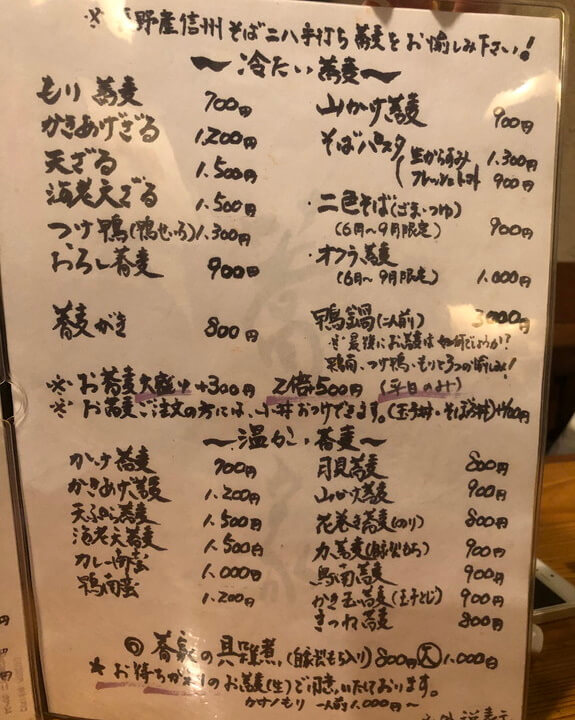 野産信州そば二八手打ち蕎麦をお愉しみ下さい!
〜冷たい蕎麦〜
もり蕎麦 700円
かきあげざる 1,200円
天ざる 1,500円
海老天ざる 1,500円
つけ鴨(鴨せいろ) 1,300円
おろし蕎麦 900円
蕎麦がき 800円
山かけ蕎麦 900円
そばパスタ
生からすみ 1,300円
フレッシュトマト 900円
・二色そば(ごま・つゆ)
(6月〜9月限定) 900円
・オクラ蕎麦
(6月〜9月限定) 1,000円
鴨鍋(一人前) 3000円
※最後にお蕎麦は如何でしょうか?
鴨南、つけ鴨、もりと3つの愉しみ!
※お蕎麦大盛り+300円 2倍500円 (平日のみ)
※お蕎麦ご注文の方には、小丼おつけできます。(玉子丼・そぼろ丼)+400円
〜温かい蕎麦〜
かけ蕎麦 700円
かきあげ蕎麦 1,200円
天ぷら蕎麦 1,500円
海老天蕎麦 1,500円
カレー南蛮 1,000円
鴨南蛮 1,200円
月見蕎麦 800円
山かけ蕎麦 900円
花巻き蕎麦(のり) 800円
力蕎麦(自家製もち) 900円
鳥南蕎麦 900円
かき玉蕎麦(玉子とじ) 900円
きつね蕎麦 800円
の具雑煮(自家製もち入り) 800円 大 1,000円
★お持ち帰りのお蕎麦(生)ご用意いたしております。
一人前1,000円〜